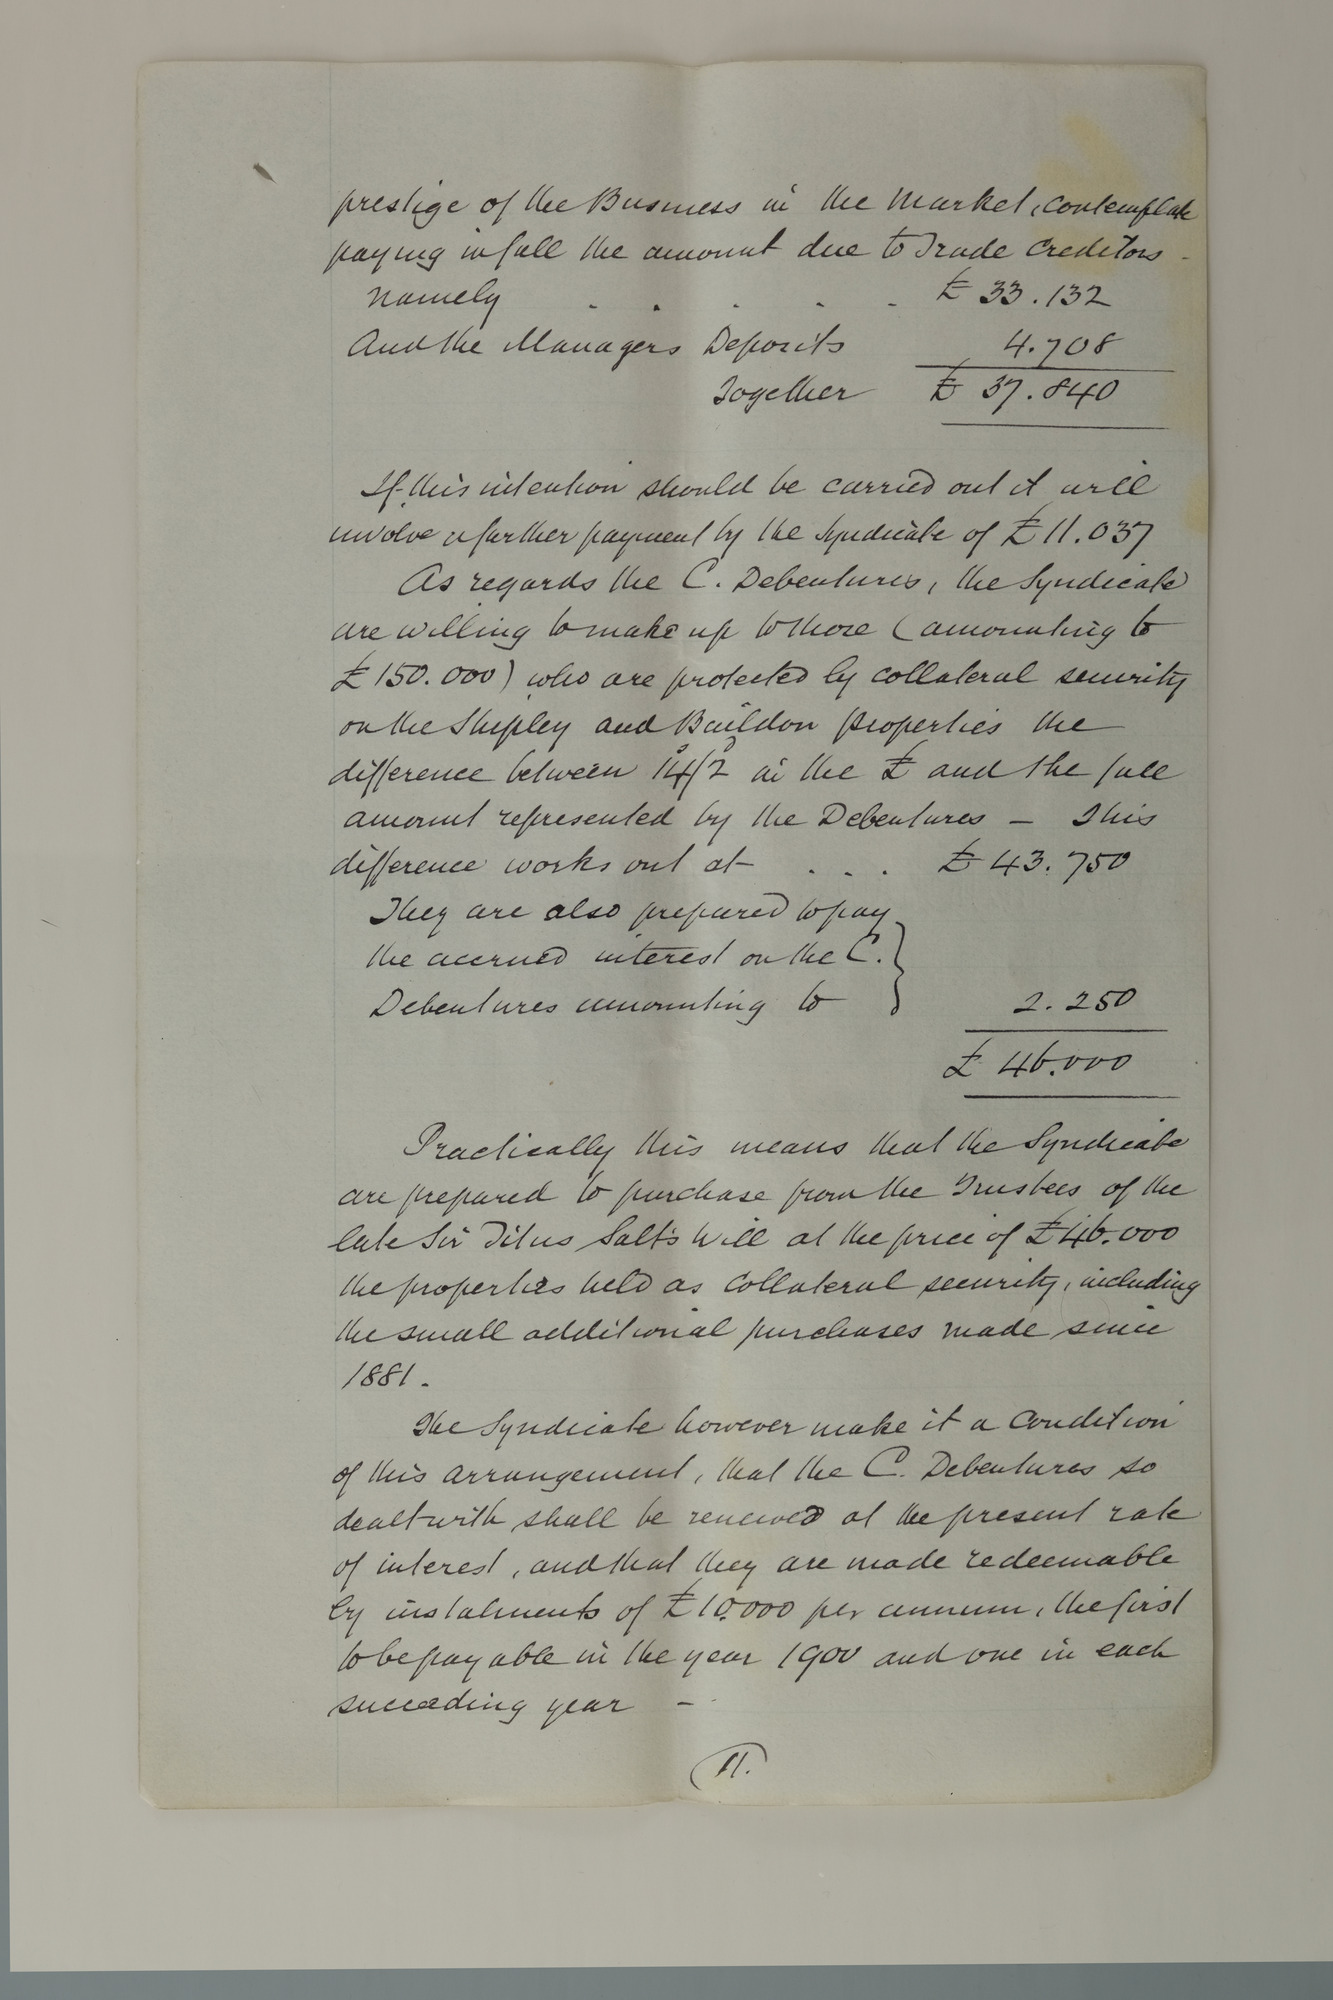 prestige of the Business in the Market, contemplate
paying in full the amount due to Trade Creditors -
Namely . . . . . £ 33.132
And the Managers Deposits 4.708
Together £ 37.840
If this intention should be carried out it will
involve a further payment by the Syndicate of £11.037
As regards the C. Debentures, the Syndicate
are willing to make up to those (amounting to
£150.000) who are protected by collateral security
on the Shipley and Baildon properties the
difference between 14/2 in the £ and the full
amount represented by the Debentures - This
difference works out at . . . £ 43.750
They are also prepared to pay
the accrued interest on the C.
Debentures amounting to 2.250
£ 46.000
Practically this means that the Syndicate
are prepared to purchase from the Trustees of the
late Sir Titus Salt's Will at the price of £46.000
the properties held as collateral security, including
the small additional purchases made since
1881.
The Syndicate however make it a Condition
of this arrangement, that the C. Debentures so
dealt with shall be renewed at the present rate
of interest, and that they are made redeemable
by instalments of £10.000 per annum, the first
to be payable in the year 1900 and one in each
succeeding year -
11.